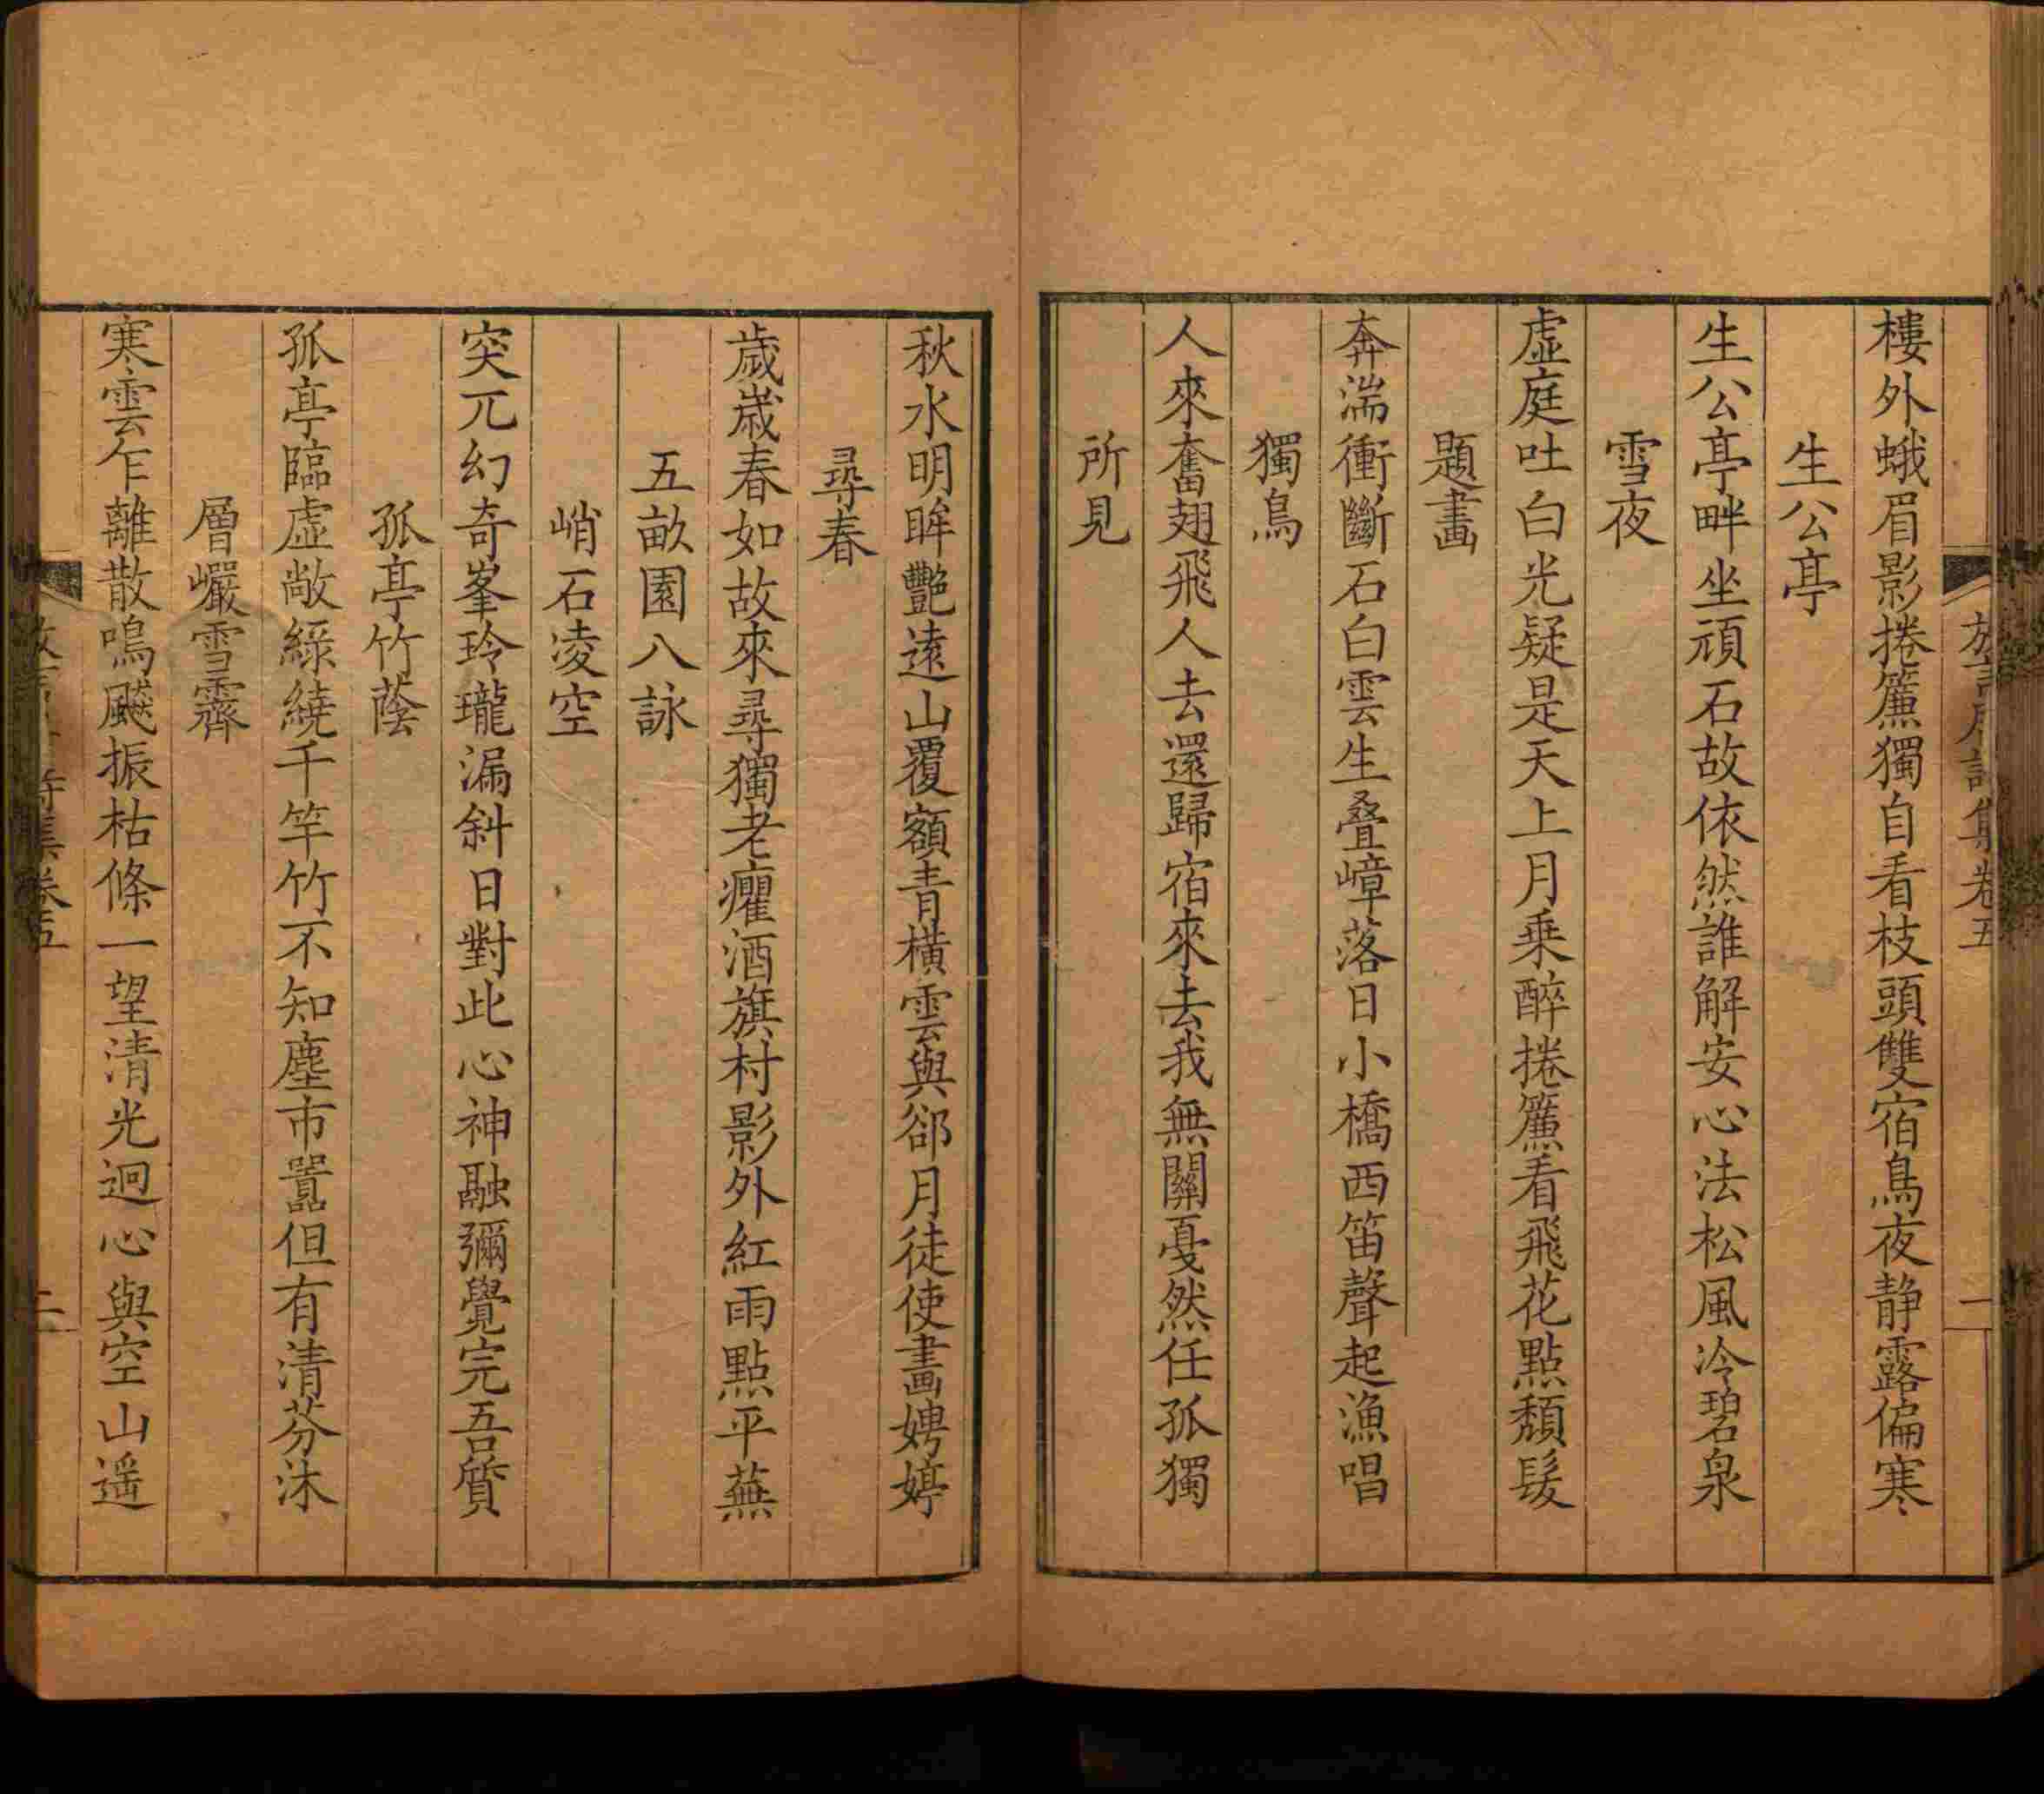 樓外蛾眉影捲簾獨自看枝頭雙宿鳥夜静露偏寒
生公亭
生公亭畔坐頑石故依然誰解安心法松風冷碧泉
雪夜
虛庭吐白光疑是天上月乗醉捲簾看飛花點頹髮
題畫
奔湍衝斷石白雲生叠嶂落日小橋西笛聲起漁唱
獨鳥
人來奮翅飛人去還歸宿來去我無關戞然任孤獨
所見
秋水明眸艷遠山覆額青橫雲與郤月徒使畫娉婷
尋春
歲歲春如故來尋獨老癯酒旗村影外紅雨點平蕪
五畝園八詠
峭石凌空
突兀幻奇峯玲瓏漏斜日對此心神融彌覺完吾質
孤亭竹蔭
孤亭臨虛敞綠繞千竿竹不知塵市囂但有清芬沐
層巘雪霽
寒雲乍離散鳴飈振枯條一望清光迥心與空山遥
集卷五
二